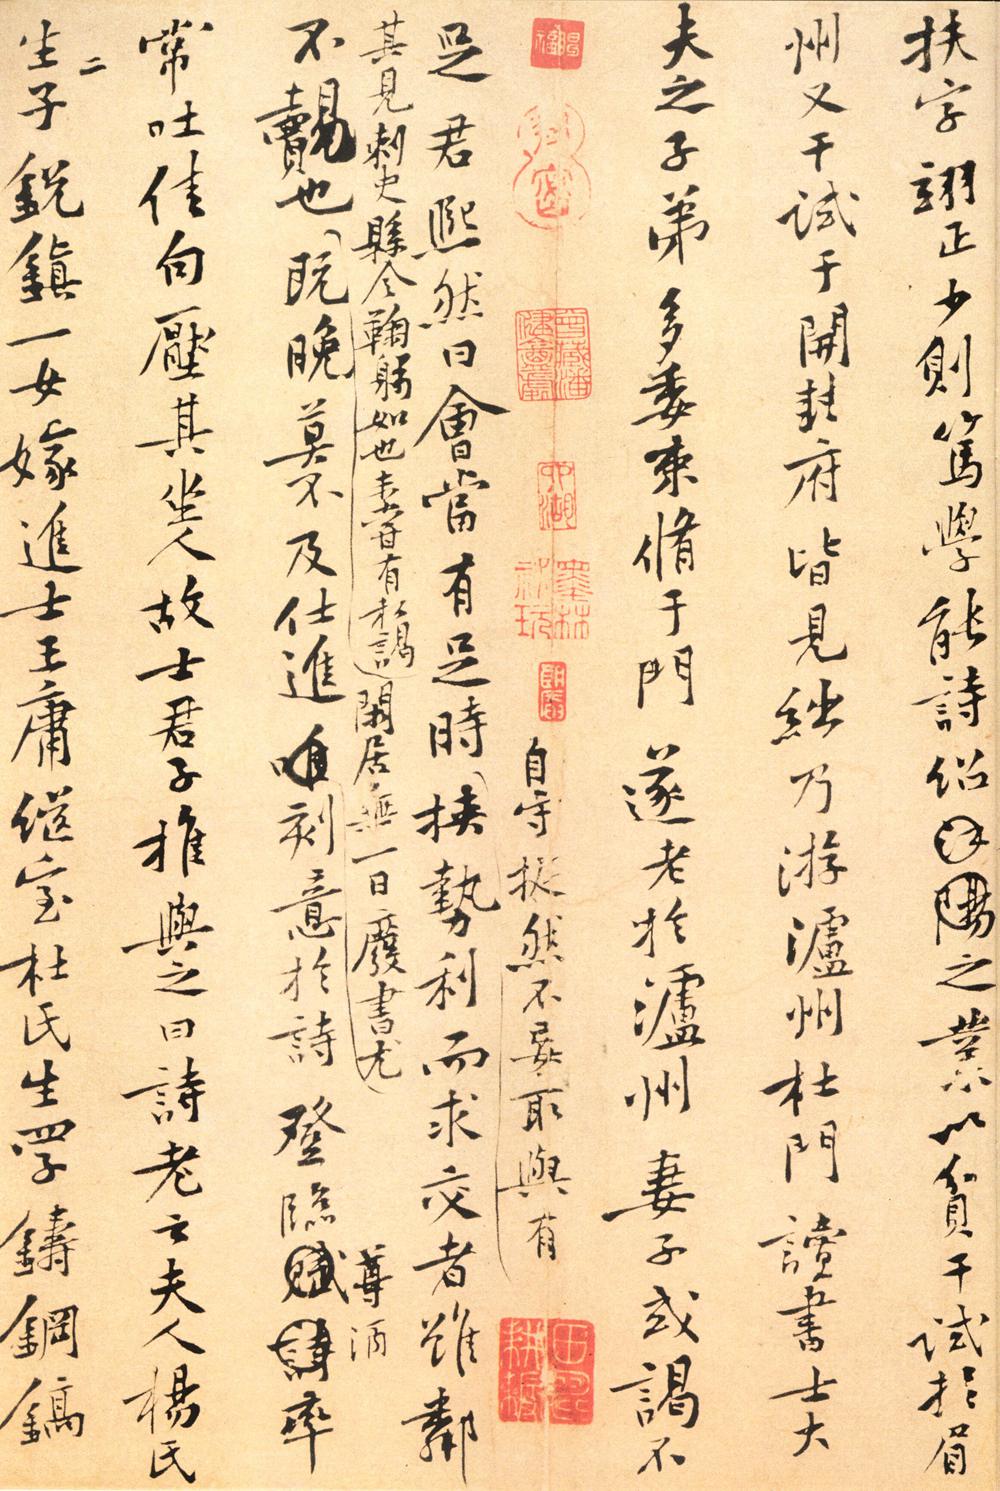 扶字翊正少則篤學能詩紹江陽之業以貧干試於眉
州又干試于開封府皆見絀乃游瀘州杜門讀書士大
夫之子弟多委束脩于門遂老於瀘州妻子或謁不
自守挺然不妄取與有
足君熙然曰會當有足時挾勢利而求交者雖鄰
其見刺史縣令鞠躬如也未甞有私謁閑居無一日廢書尤
尊酒
不覿也既晚莫不及仕進唯刻意於詩登臨賦詩率
常吐佳句壓其坐人故士君子推與之曰詩老云夫人楊氏
二
生子銳鎮一女嫁進士王庸繼室杜氏生四子鑄鋼鎬